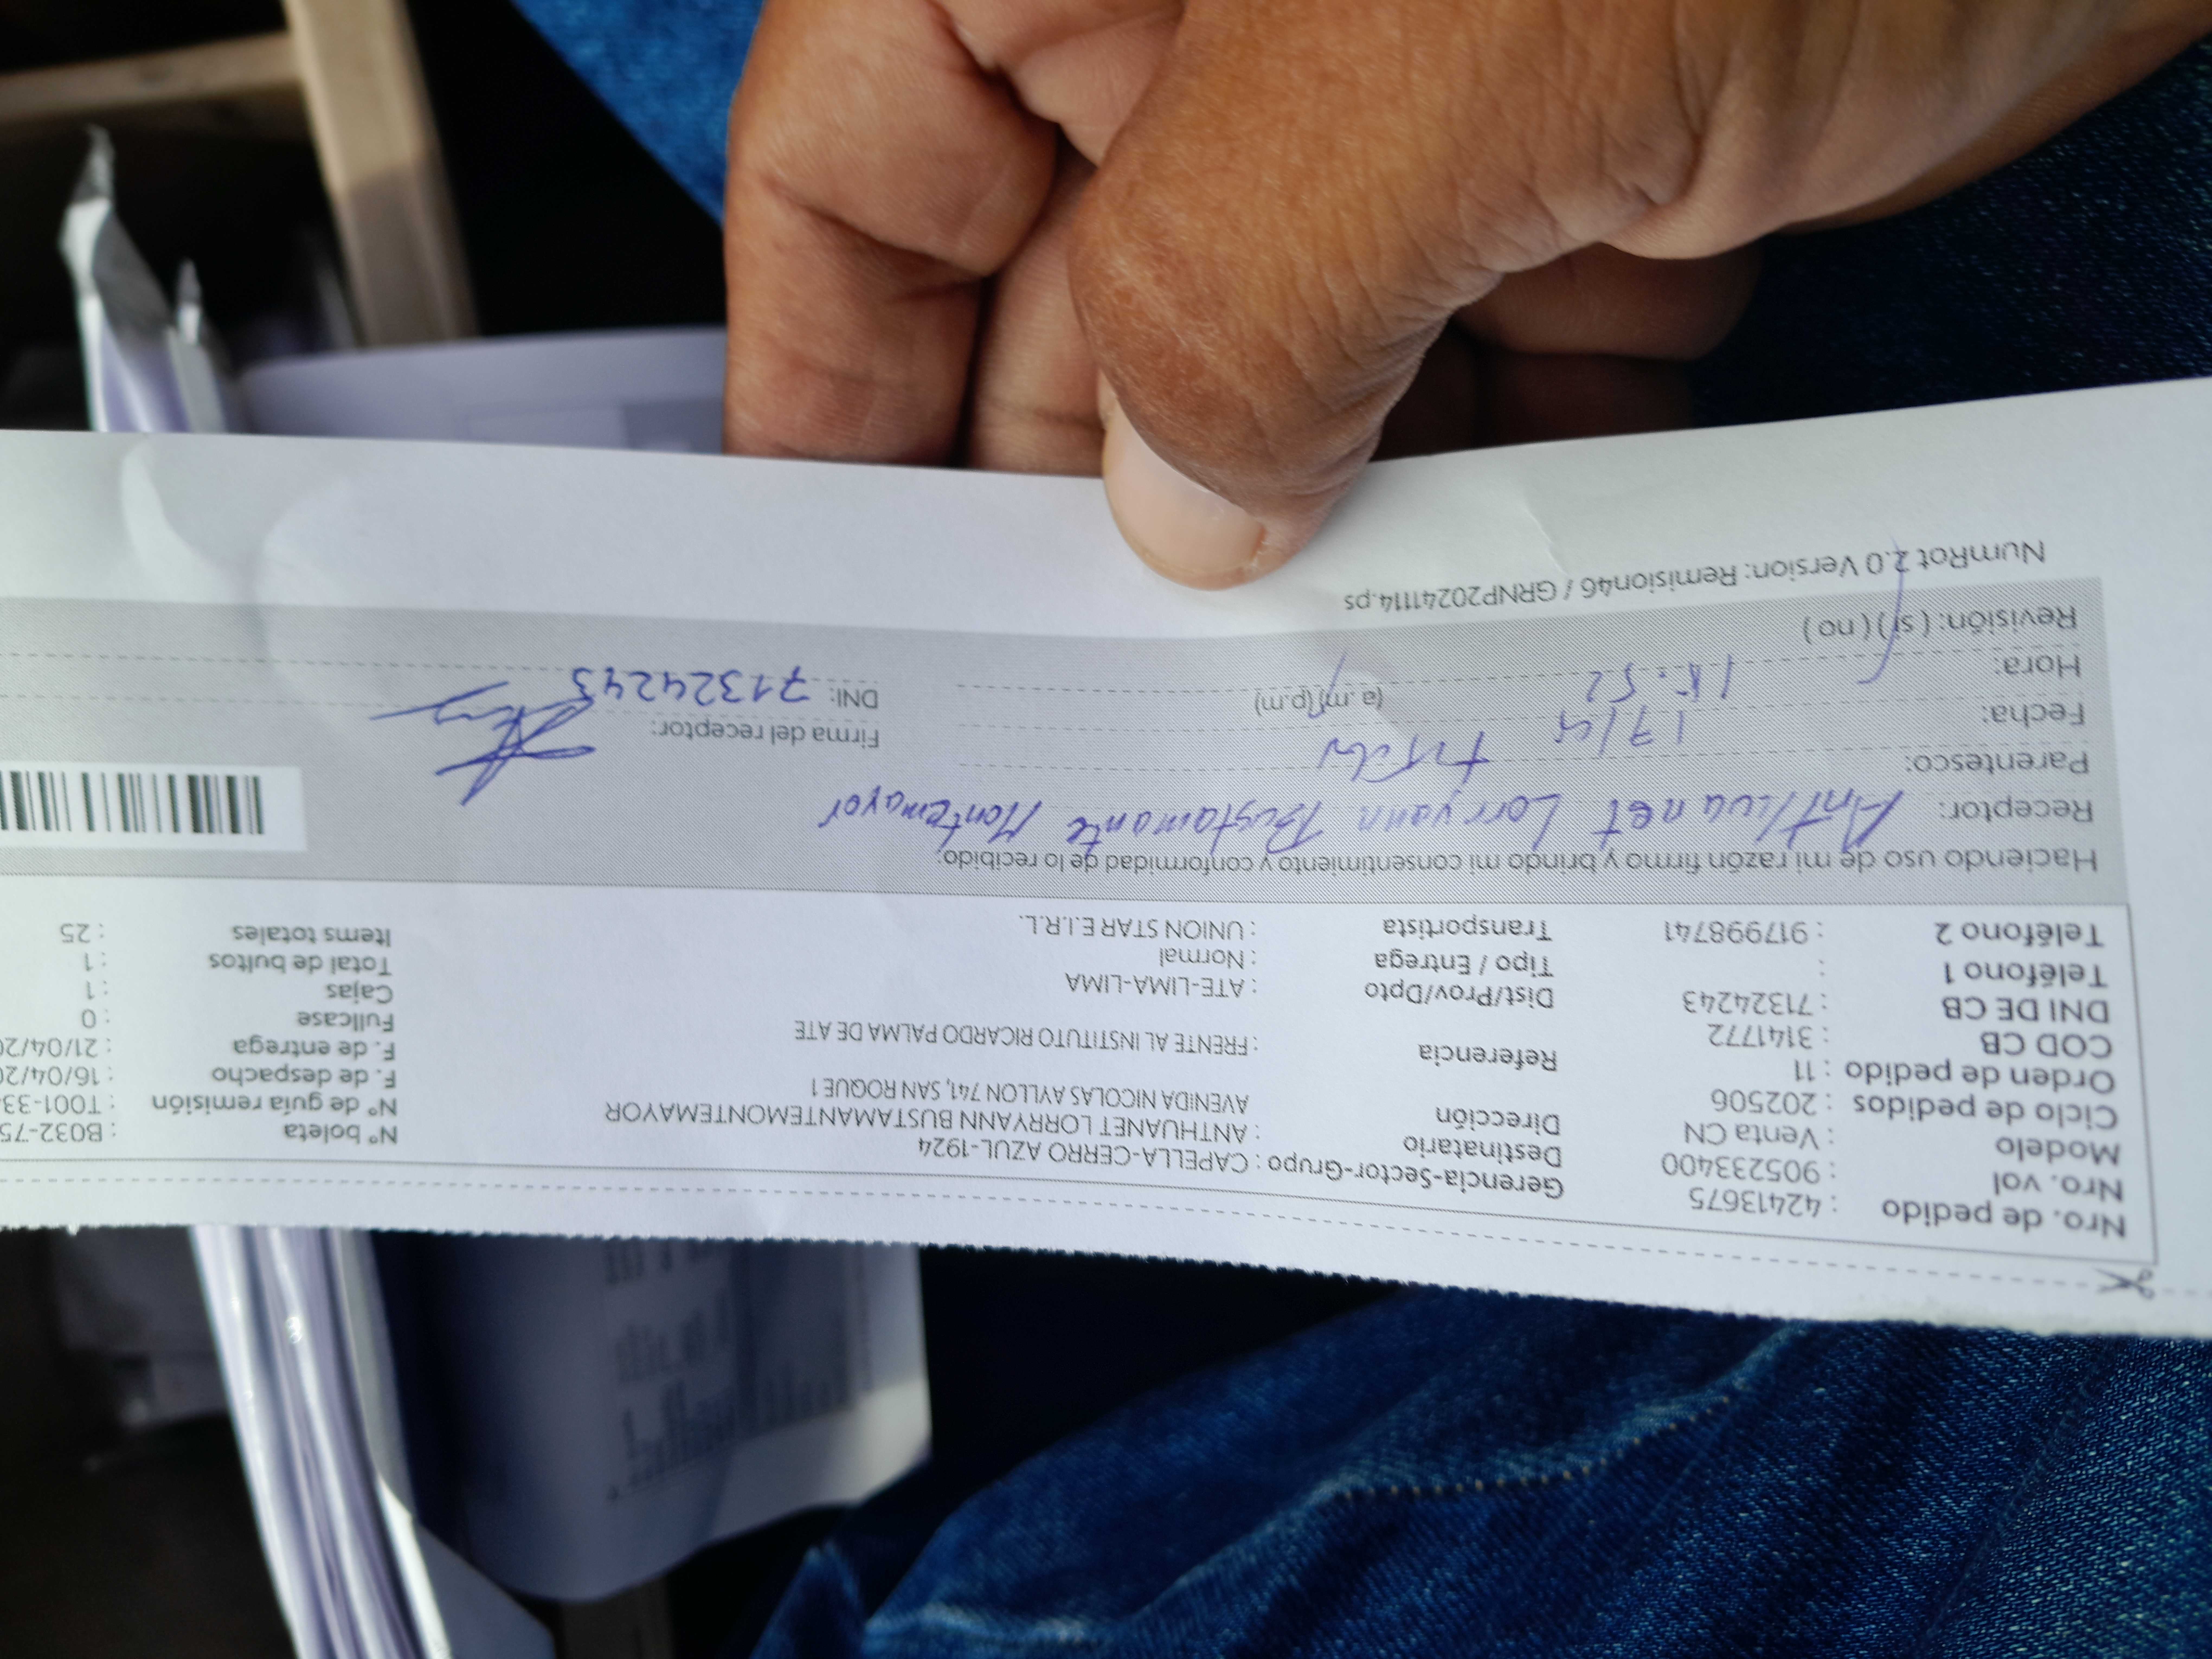 Nro. de pedido : 42413675 Gerencia-Sector-Grupo : CAPELLA-CERRO AZUL-1924 Nº boleta : B032-75
Nro. vol : 905233400 Destinatario : ANTHUANET LORRYANN BUSTAMANTEMONTEMAYOR Nº de guía remisión : T001-33
Modelo : Venta CN Dirección AVENIDA NICOLAS AYLLON 741, SAN ROQUE 1 F. de despacho : 16/04/20
Ciclo de pedidos : 202506 F. de entrega : 21/04/20
Orden de pedido : 11 Referencia : FRENTE AL INSTITUTO RICARDO PALMA DE ATE Fullcase : 0
COD CB : 3141772 Cajas : 1
DNI DE CB : 71324243 Dist/Prov/Dpto : ATE-LIMA-LIMA Total de bultos : 1
Teléfono 1 : Tipo / Entrega : Normal Items totales : 25
Teléfono 2 : 917998741 Transportista : UNION STAR E.I.R.L.
Haciendo uso de mi razón firmo y brindo mi consentimiento y conformidad de lo recibido:
Receptor: Anthuanet Lorryann Bustamante Montemayor
Parentesco:
Fecha: Firma del receptor:
Hora: (a.m)(p.m) DNI: 71324243
Revisión: ( si ) ( no )
NumRot 2.0 Version: Remision46 / GRNP20241114.ps